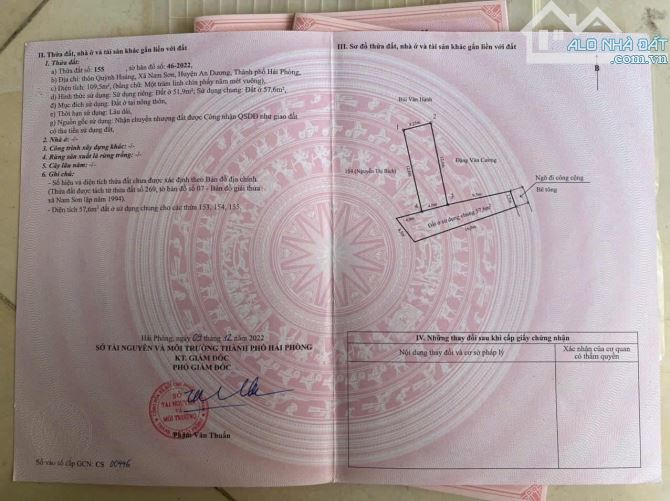 II. Thửa đất, nhà ở và tài sản khác gắn liền với đất
1. Thửa đất:
a) Thửa đất số: 155, tờ bản đồ số: 46-2022,
b) Địa chỉ: thôn Quỳnh Hoàng, Xã Nam Sơn, Huyện An Dương, Thành phố Hải Phòng,
c) Diện tích: 109,5m², (bằng chữ: Một trăm linh chín phẩy năm mét vuông),
d) Hình thức sử dụng: Sử dụng riêng: Đất ở 51,9m²; Sử dụng chung: Đất ở 57,6m²,
đ) Mục đích sử dụng: Đất ở tại nông thôn,
e) Thời hạn sử dụng: Lâu dài,
g) Nguồn gốc sử dụng: Nhận chuyển nhượng đất được Công nhận QSDĐ như giao đất
có thu tiền sử dụng đất,
2. Nhà ở: -/-
3. Công trình xây dựng khác: -/-
4. Rừng sản xuất là rừng trồng: -/-
5. Cây lâu năm: -/-
6. Ghi chú:
- Số hiệu và diện tích thửa đất chưa được xác định theo Bản đồ địa chính.
(Thửa đất được tách từ thửa đất số 269, tờ bản đồ số 07 - Bản đồ giải thửa
xã Nam Sơn lập năm 1994).
- Diện tích 57,6m² đất ở sử dụng chung cho các thửa 153, 154, 155.
Hải Phòng, ngày 09 12 2022
SỞ TÀI NGUYÊN VÀ MÔI TRƯỜNG THÀNH PHỐ HẢI PHÒNG
KT. GIÁM ĐỐC
PHÓ GIÁM ĐỐC
SỞ
TÀI NGUYÊN
VÀ
MÔI TRƯỜNG
Phạm Văn Thuấn
Số vào sổ cấp GCN: CS 00446
III. Sơ đồ thửa đất, nhà ở và tài sản khác gắn liền với đất
B
Bùi Văn Hành
1
2
154 (Nguyễn Thị Bích)
Đặng Văn Cường
Ngõ đi công cộng
Bê tông
Đất ở sử dụng chung 57,6m²
IV. Những thay đổi sau khi cấp giấy chứng nhận
Nội dung thay đổi và cơ sở pháp lý
Xác nhận của cơ quan
có thẩm quyền
ALO NHÀ ĐẤT